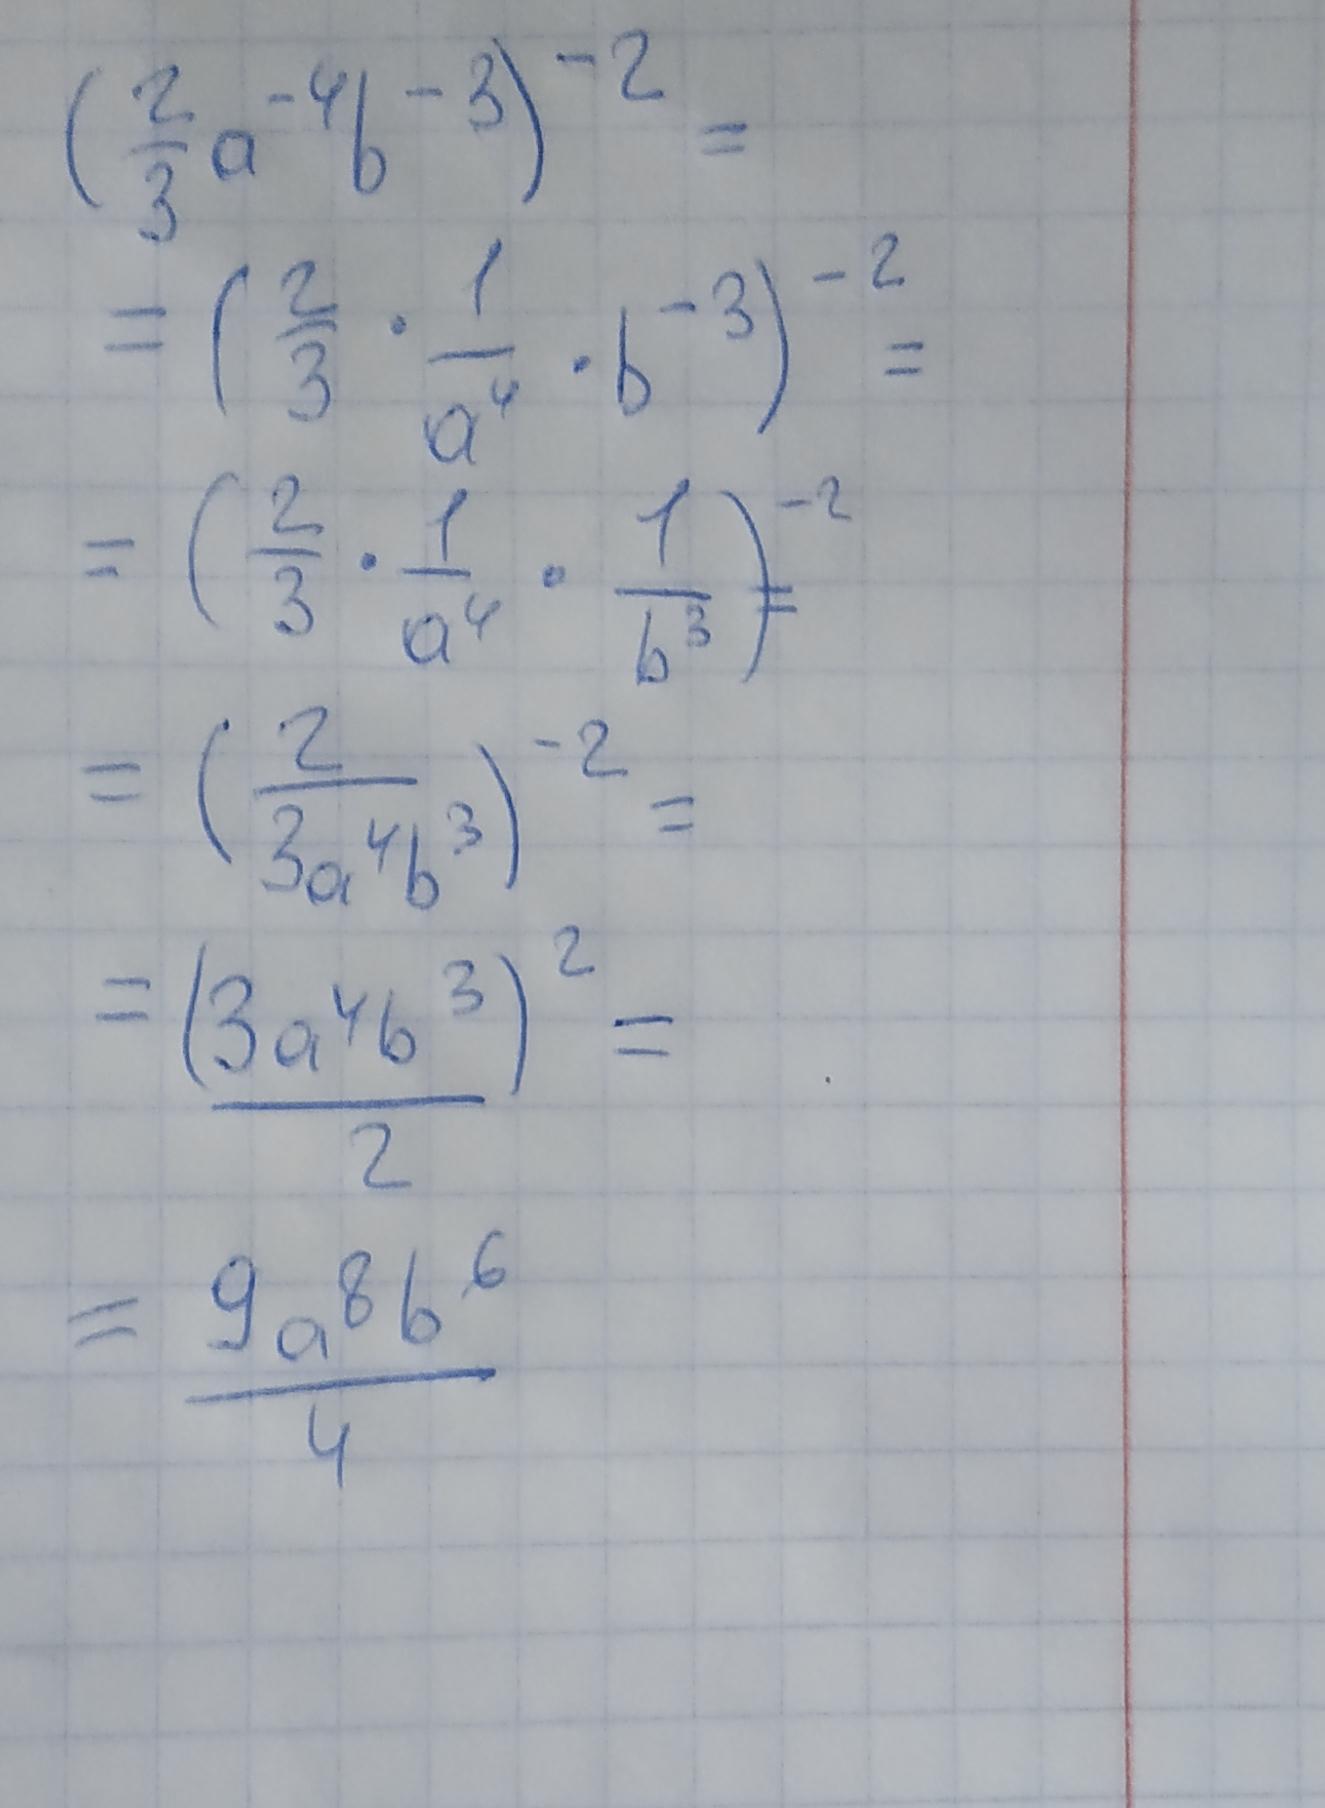 (2/3 a⁻⁴b⁻³)⁻² =
= (2/3 · 1/a⁴ · b⁻³)⁻² =
= (2/3 · 1/a⁴ · 1/b³)⁻² =
= (2/3a⁴b³)⁻² =
= (3a⁴b³)²/2 =
= 9a⁸b⁶/4